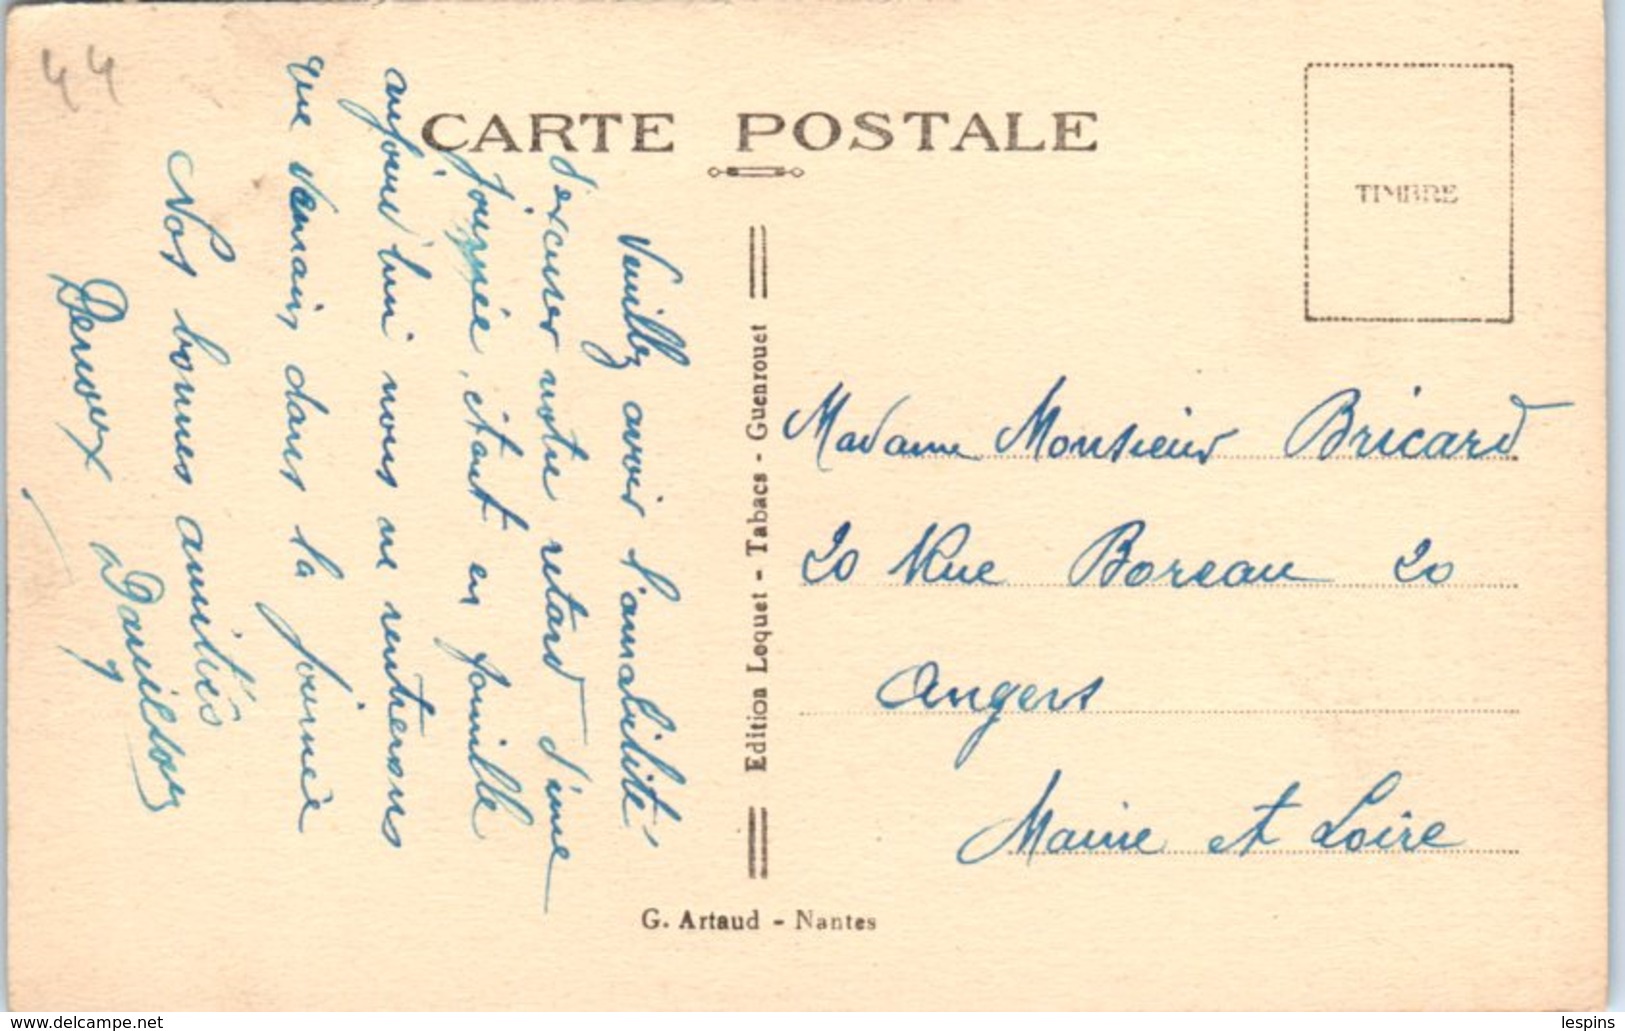 44
CARTE POSTALE
TIMBRE
Veuillez avoir l'amabilité
d'excuser notre retard d'une
journée, étant en famille
aujourd'hui nous ne rentrerons
que demain, dans la journée
Nos bonnes amitiés
Edition Loquet - Tabacs - Guenrouet
Madame Monsieur Bricard
20 Rue Boreau 20
Angers
Maine et Loire
G. Artaud - Nantes
www.delcampe.net
lespins